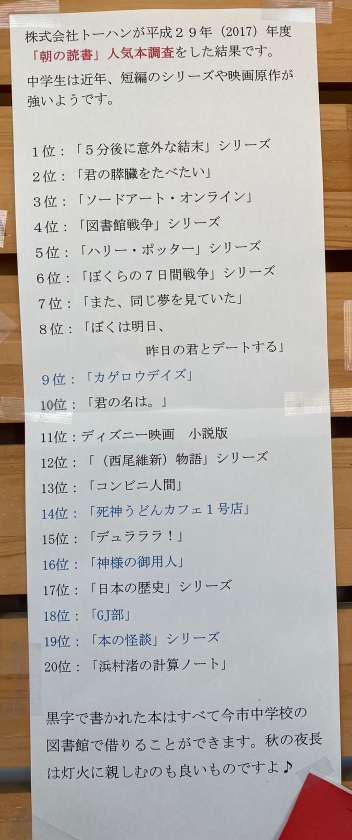 株式会社トーハンが平成２９年（2017）年度
「朝の読書」人気本調査をした結果です。
中学生は近年、短編のシリーズや映画原作が
強いようです。
１位：「５分後に意外な結末」シリーズ
２位：「君の膵臓をたべたい」
３位：「ソードアート・オンライン」
４位：「図書館戦争」シリーズ
５位：「ハリー・ポッター」シリーズ
６位：「ぼくらの７日間戦争」シリーズ
７位：「また、同じ夢を見ていた」
８位：「ぼくは明日、
昨日の君とデートする」
９位：「カゲロウデイズ」
10位：「君の名は。」
11位：ディズニー映画　小説版
12位：「（西尾維新）物語」シリーズ
13位：「コンビニ人間」
14位：「死神うどんカフェ１号店」
15位：「デュラララ！」
16位：「神様の御用人」
17位：「日本の歴史」シリーズ
18位：「GJ部」
19位：「本の怪談」シリーズ
20位：「浜村渚の計算ノート」
黒字で書かれた本はすべて今市中学校の
図書館で借りることができます。秋の夜長
は灯火に親しむのも良いものですよ♪